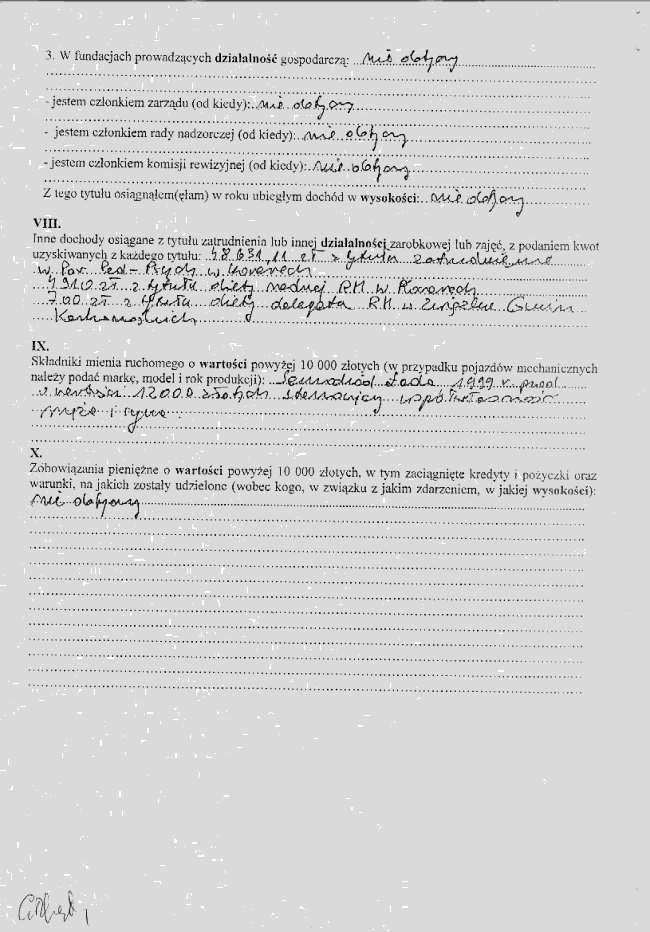 3. W fundacjach prowadzących działalność gospodarczą: nie dotyczy
- jestem członkiem zarządu (od kiedy): nie dotyczy
- jestem członkiem rady nadzorczej (od kiedy): nie dotyczy
- jestem członkiem komisji rewizyjnej (od kiedy): nie dotyczy
Z tego tytułu osiągnąłem(ęłam) w roku ubiegłym dochód w wysokości: nie dotyczy
VIII.
Inne dochody osiągane z tytułu zatrudnienia lub innej działalności zarobkowej lub zajęć, z podaniem kwot
uzyskiwanych z każdego tytułu: 48 631,11 zł z tytułu zatrudnienia
w Por. Ped-Psych w Kowarach
4910 zł z tytułu diety radnej RM w Kowarach
700 zł z tytułu diety delegata RM w Związku Gmin
Karkonoskich
IX.
Składniki mienia ruchomego o wartości powyżej 10 000 złotych (w przypadku pojazdów mechanicznych
należy podać markę, model i rok produkcji): Samochód 1999 r. prod
o wartości 12000 złotych stanowiący współwłasność
męża i syna
X.
Zobowiązania pieniężne o wartości powyżej 10 000 złotych, w tym zaciągnięte kredyty i pożyczki oraz
warunki, na jakich zostały udzielone (wobec kogo, w związku z jakim zdarzeniem, w jakiej wysokości):
nie dotyczy